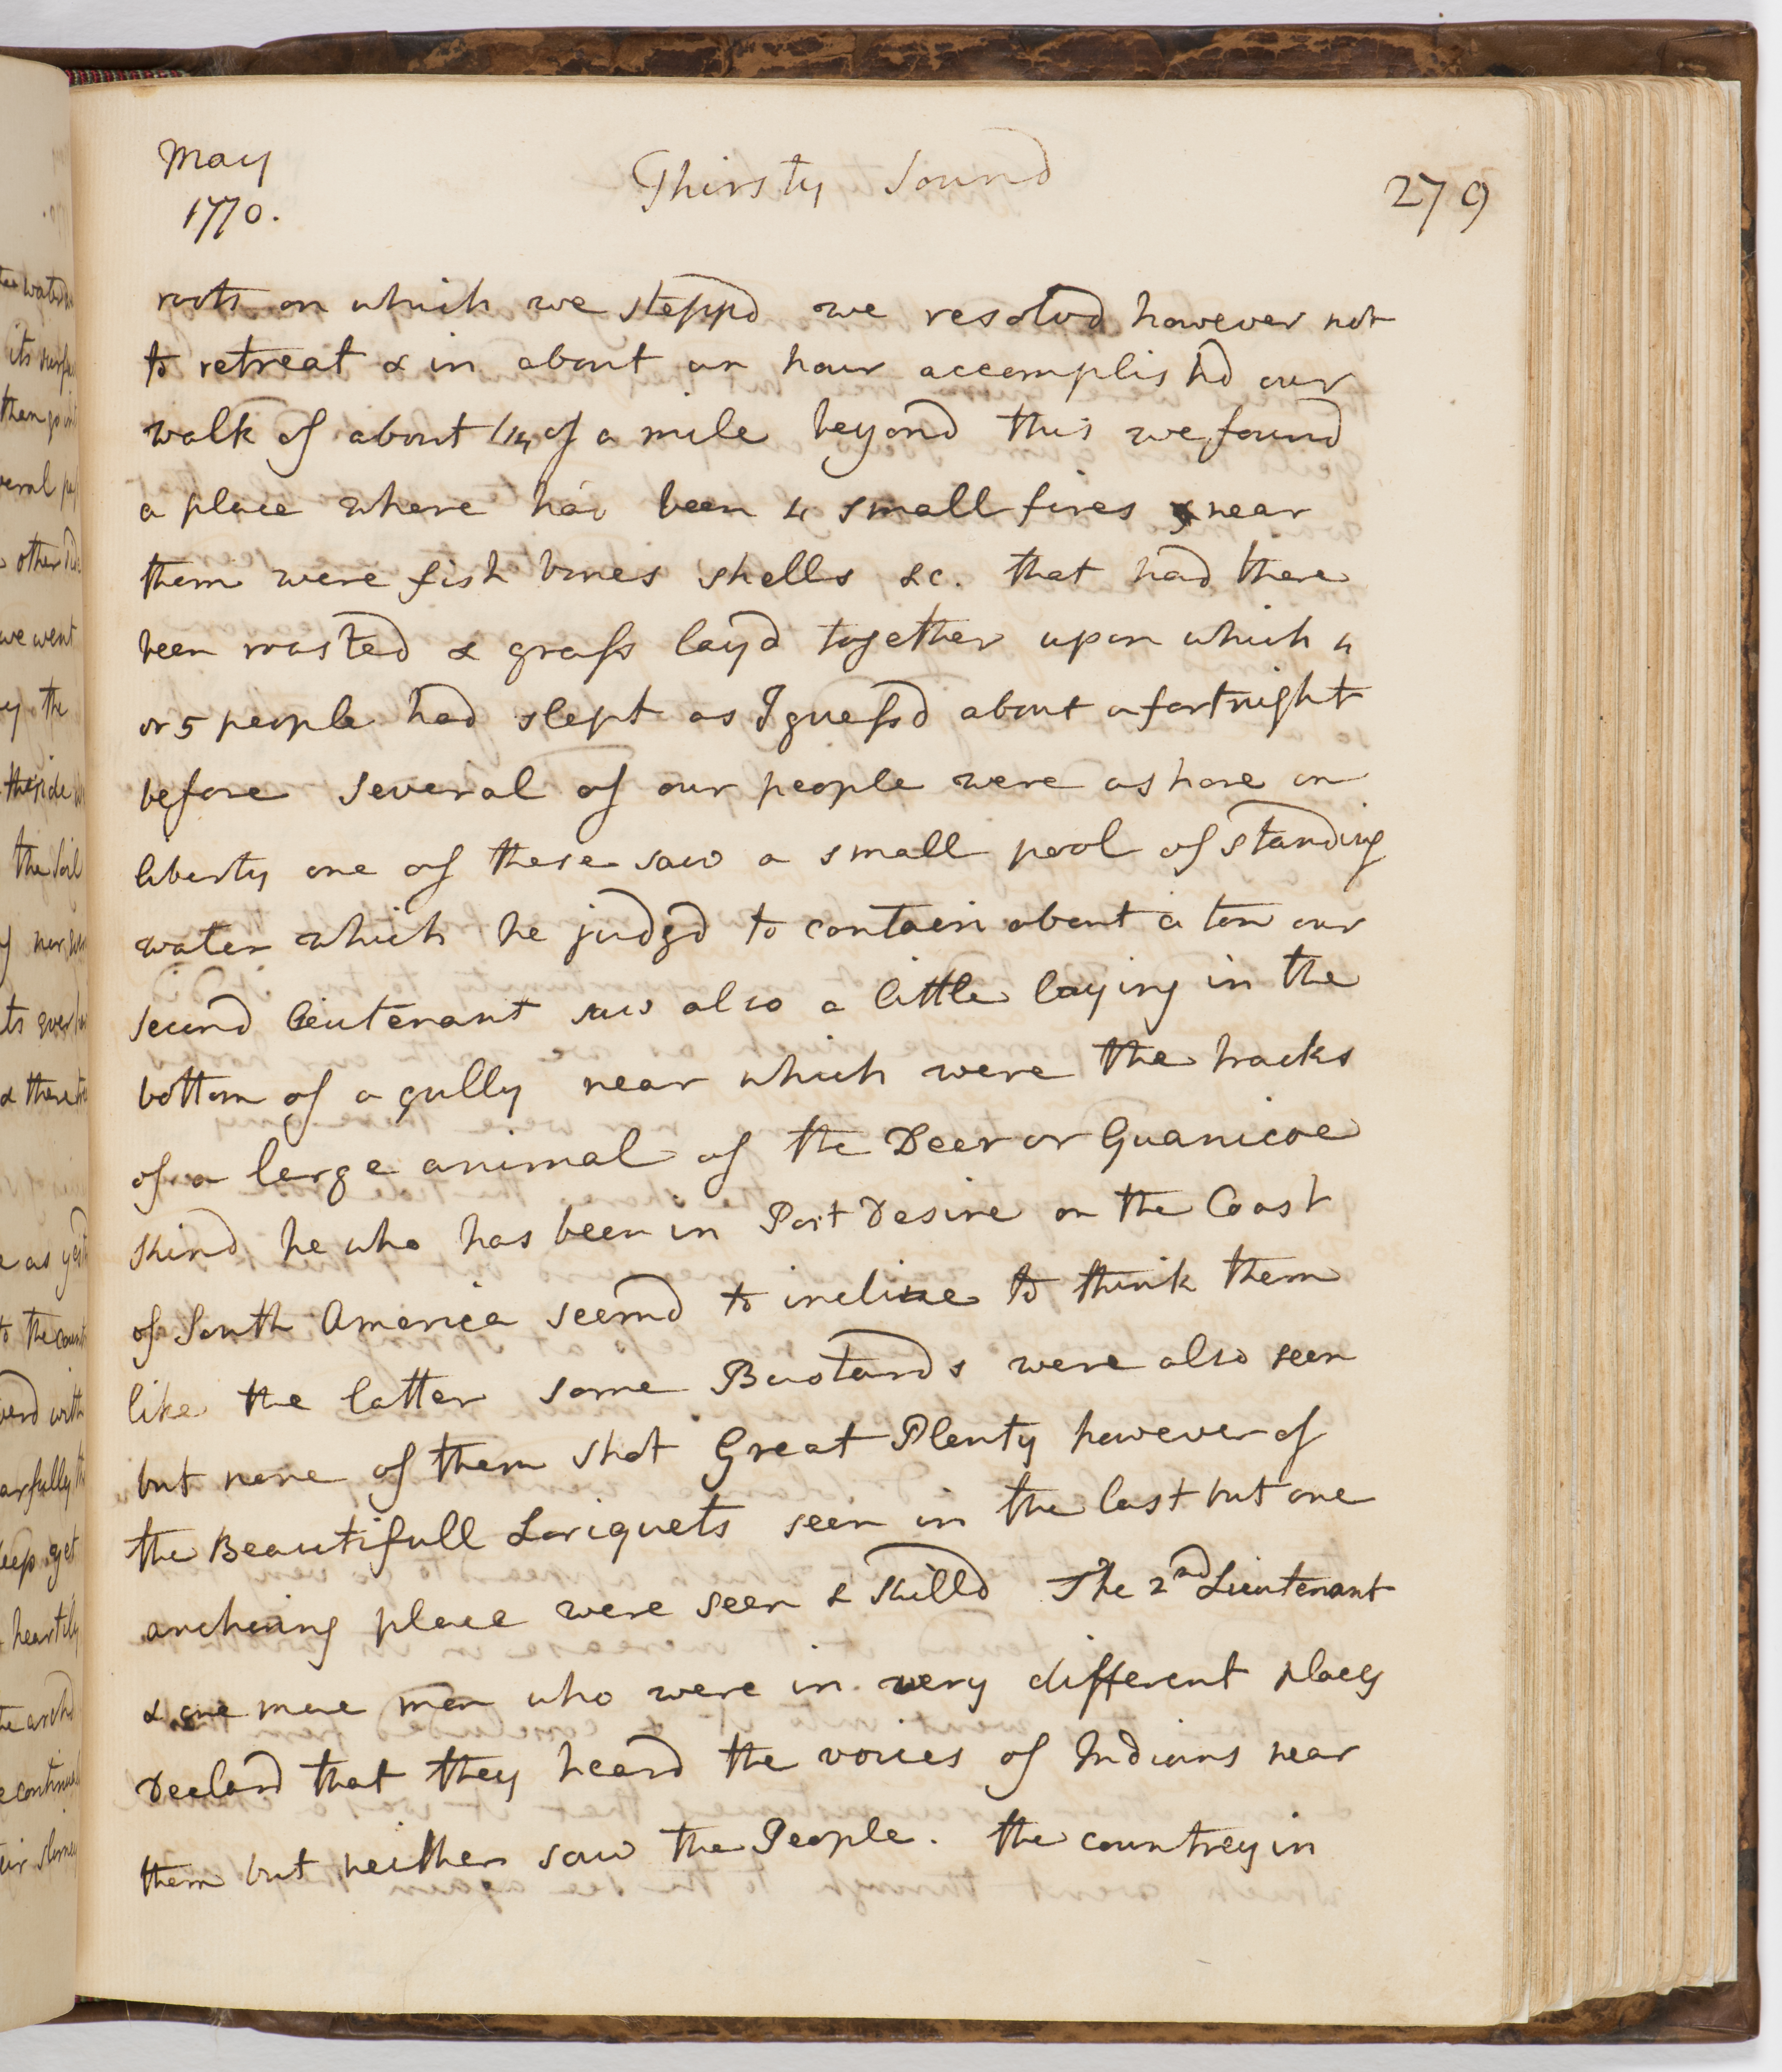 May
1770.
Thirsty Sound
279
roots on which we steppd we resolvd however not
to retreat & in about an hour accomplishd our
walk of about 1/4 of a mile beyond this we found
a place where had been 4 small fires & near
them were fish bones shells &c. that had there
been roasted & grass layd together upon which 4
or 5 people had slept as I guessd about a fortnight
before Several of our people were ashore on
liberty one of these saw a small pool of standing
water which he judgd to contain about a ton our
second lieutenant saw also a little laying in the
bottom of a gully near which were the tracks
of a large animal of the Deer or Guanicoe
kind he who has been in Port Desire on the Coast
of South America seemd to incline to think them
like the latter some Bustards were also seen
but none of them shot Great Plenty however of
the Beautifull Loriquets seen in the last but one
anchoring place were seen & killd The 2nd Lieutenant
& one more man who were in very different places
Declard that they heard the voices of Indians near
them but neither saw the People. the countrey in